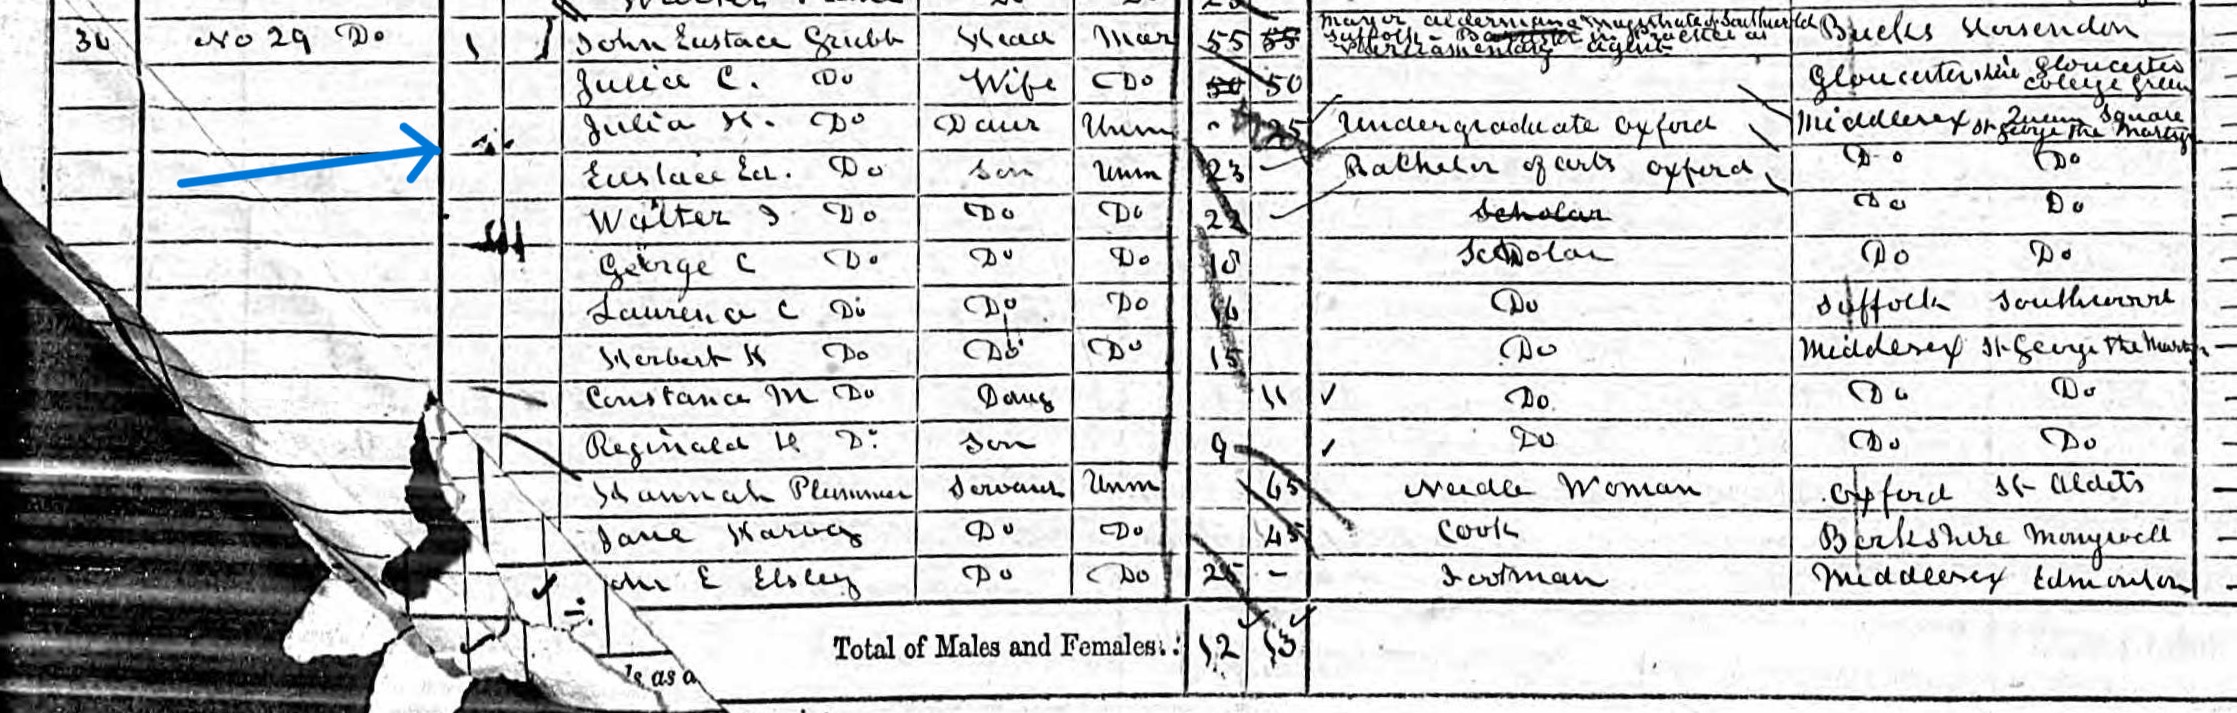 30 No 29 Do 1 John Eustace Grubb Head Mar 55 55 Mayor Alderman & Magistrate of Southwold Suffolk - Barrister in Practice as Parliamentary Agent Bucks Horsendon
Julia C. Do Wife Do 50 50 Gloucestershire Gloucester College Green
Julia H. Do Daur Unm 25 Undergraduate Oxford Middlesex Queen Square St George the Martyr
Eustace Ed. Do Son Unm 23 - Bachelor of arts Oxford Do Do
Walter Do Do Do 22 - Scholar Do Do
George C Do Do Do 18 Scholar Do Do
Laurence C Do Do Do 16 Do Suffolk Southwold
Herbert H Do Do Do 15 Do Middlesex St George the Martyr
Constance M Do Daug 11 Do Do Do
Reginald H Do Son 9 Do Do Do
Hannah Plummer Servant Unm 65 Needle Woman Oxford St Aldets
Jane Harvey Do Do 45 Cook Berkshire Mongwell
ohn E Elsley Do Do 25 - Footman Middlesex Edmonton
Total of Males and Females.. 12 13
ls as a